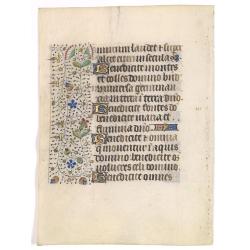 num laudet et super
altet eum in secula
Benedicite montes
et colles domino bnd
universa germinan
in terra dno
Benedicite fontes do
benedicite maria et
flumina dno
Benedicite et omnia
que moventur i aquis
domino benedicite
volucres celi domino
Benedicite omnes